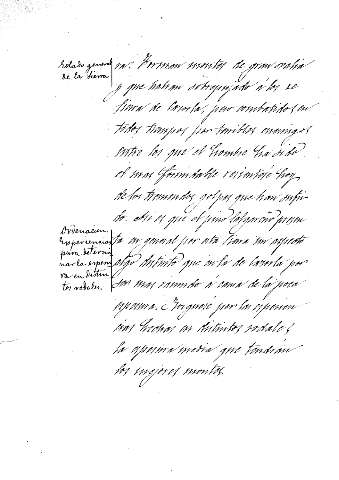 Estado general
de la Sierra
ra. Forman montes de gran valía
y que habían sobrepujado á los de
Sierra de Cazorla, pero combatidos en
todos tiempos por terribles enemigos
entre los que el hombre ha sido
el mas formidable resiéntese hoy
de los tremendos golpes que han sufri-
do. Asi es que el pino laricio presen-
ta en general por esta Sierra un aspecto
algo distinto que en la de Cazorla por
ser mas ramudo á causa de la poca
espesura.
por las experien-
cias hechas en distintos rodales
la espesura media que tendrán
los mejores montes.
Ordenacion
Experiencias
para determi-
nar la espesu-
ra en distin-
tos rodales.